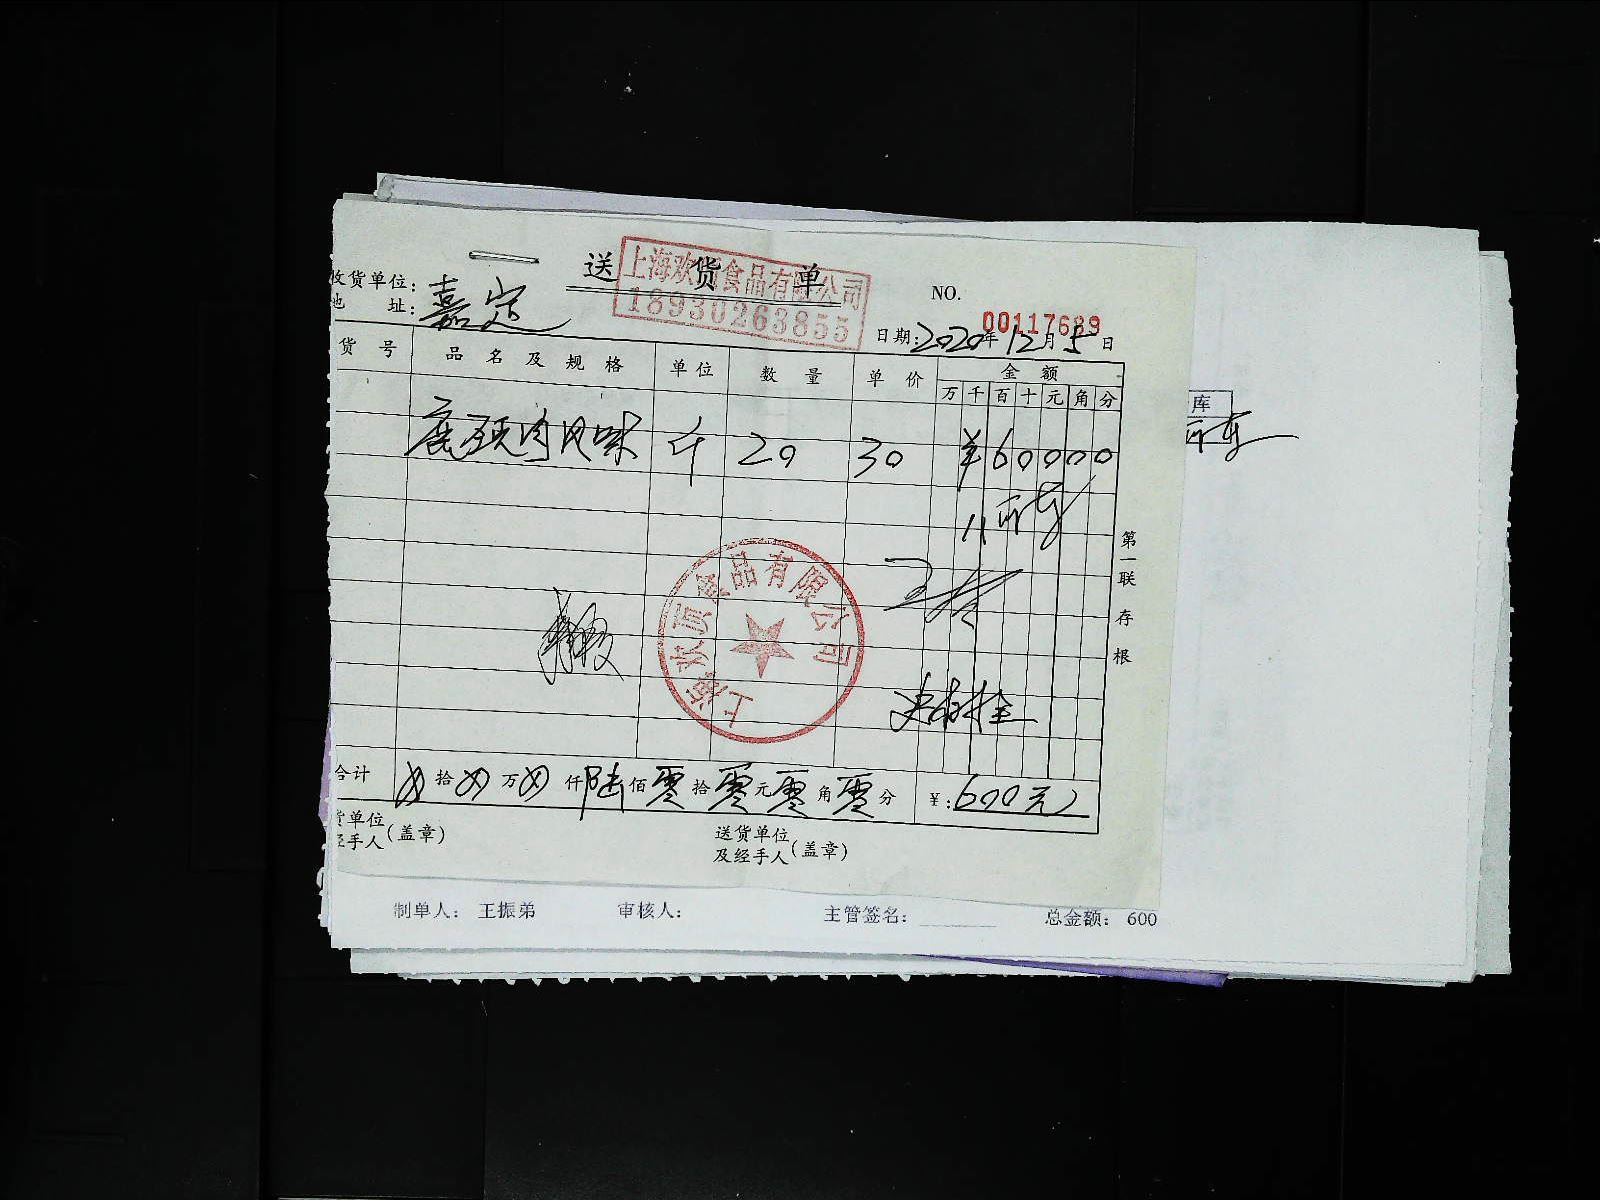 送货单
上海欢顶食品有限公司
18930263855
收货单位:
地址: 嘉定
NO. 00117689
日期: 2020年12月5日
货号 品名及规格 单位 数量 单价 金额
万 千 百 十 元 角 分
鹿颈肉风味 斤 20 30 ¥60000
库
上海欢顶食品有限公司
第一联存根
合计 拾 万 仟 陆 佰 零 拾 零 元 零 角 零 分 ¥: 600元
货单位
经手人(盖章)
送货单位
及经手人(盖章)
制单人: 王振弟 审核人: 主管签名: 总金额: 600